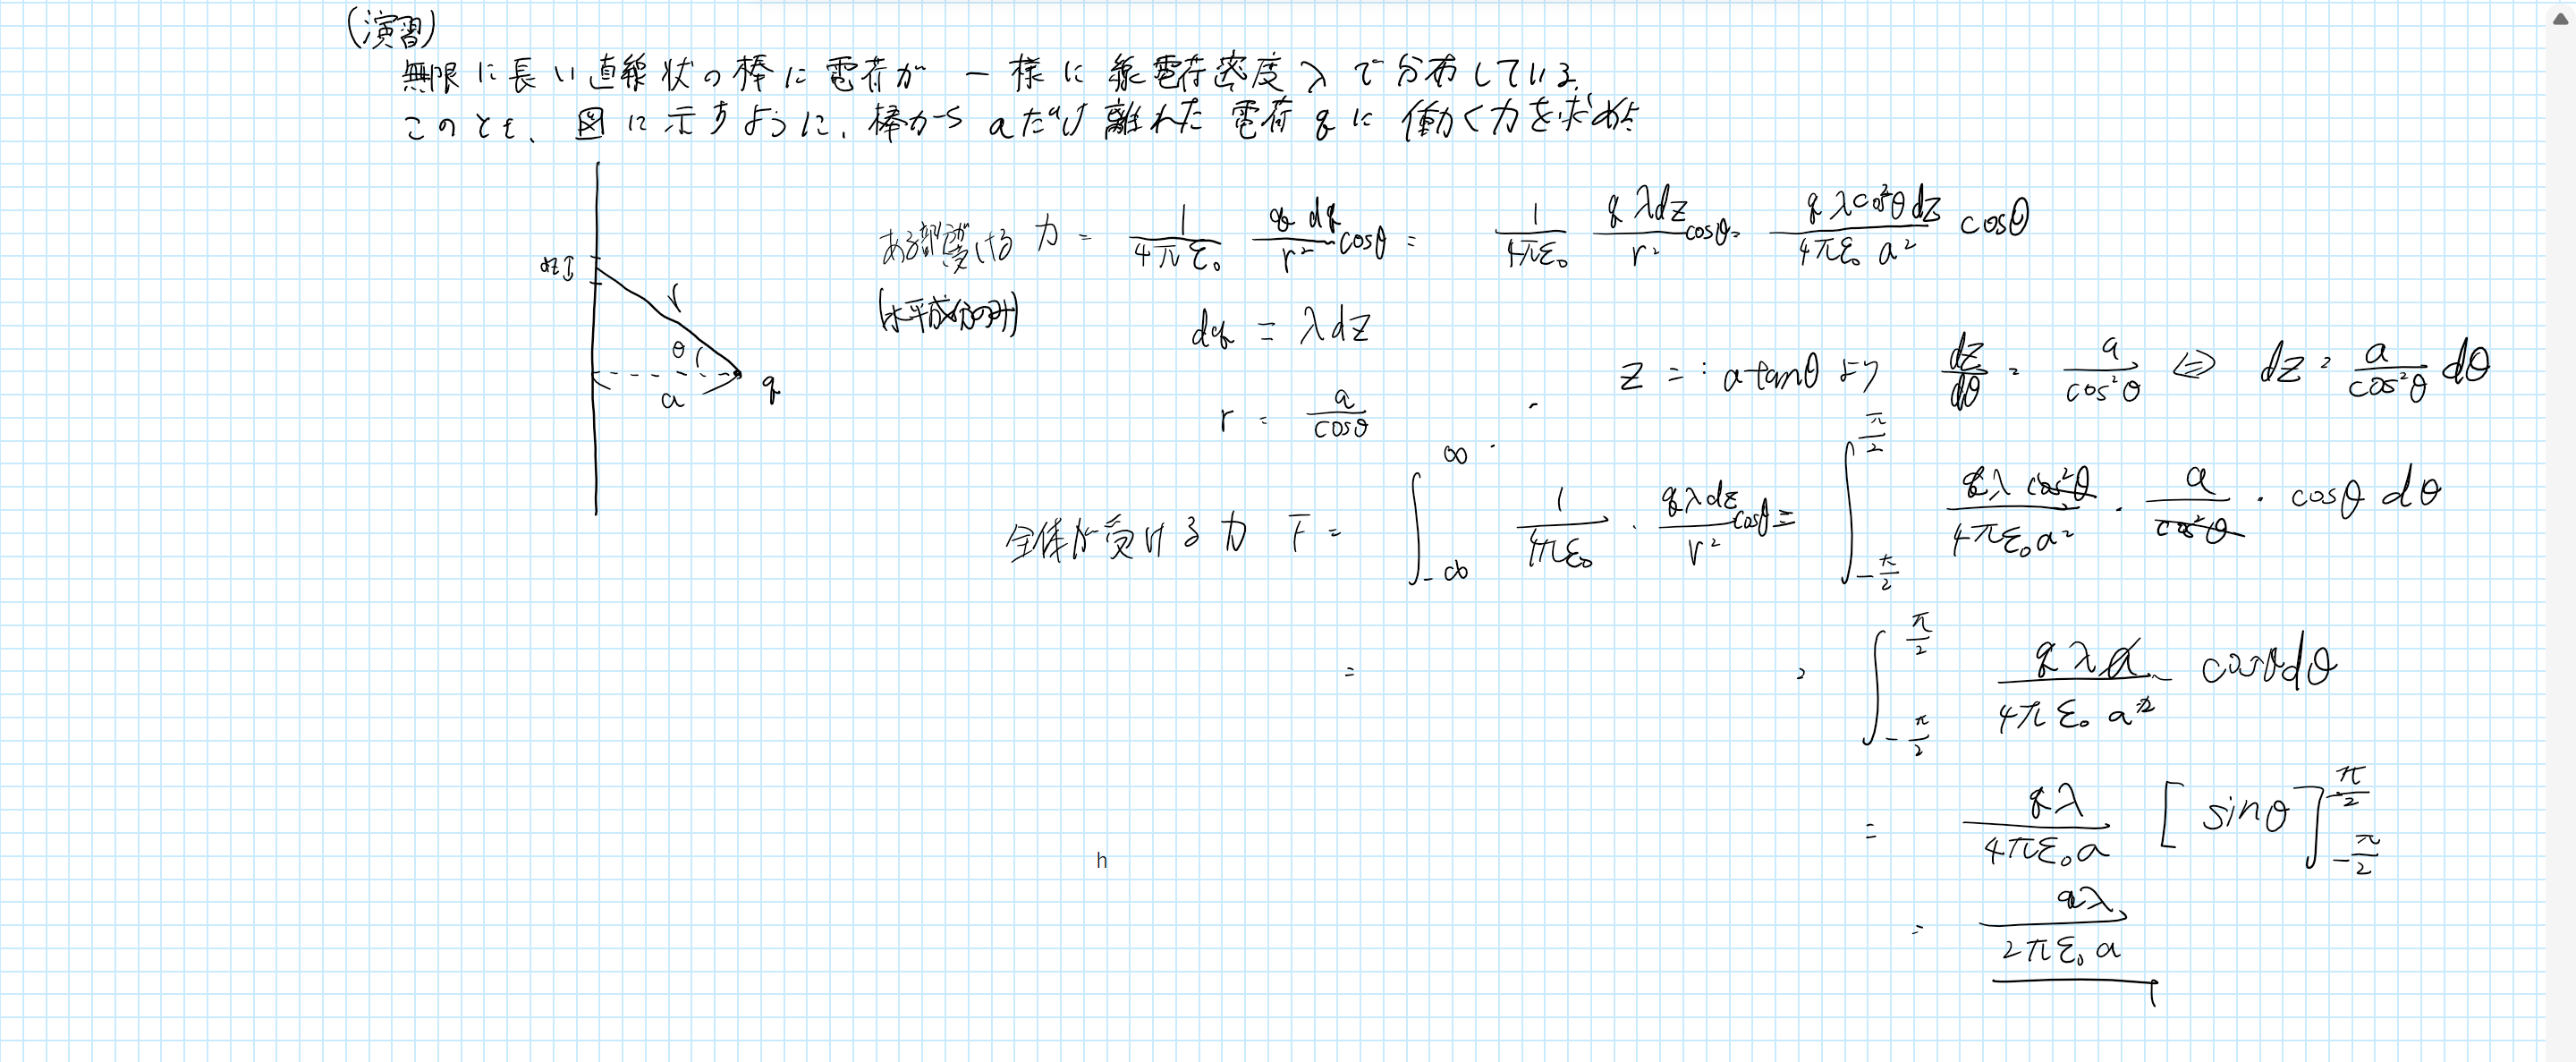 (演習)
無限に長い直線状の棒に電荷が一様に線電荷密度λで分布している.
このとき、図に示すように、棒からaだけ離れた電荷qに働く力を求めよ
dz
r
θ
a
q
ある部分が受ける力 = 1/(4πε₀) q dq/r² cosθ = 1/(4πε₀) qλdz/r² cosθ = qλcos²θdz/(4πε₀ a²) cosθ
(水平成分のみ)
dq = λdz
z = : a tanθ より dz/dθ = a/cos²θ ⇔ dz = a/cos²θ dθ
r = a/cosθ
全体が受ける力 F = ∫_{-∞}^{∞} 1/(4πε₀) · qλdz/r² cosθ = ∫_{-π/2}^{π/2} qλcos²θ/(4πε₀a²) · a/cos²θ · cosθ dθ
= = ∫_{-π/2}^{π/2} qλa/(4πε₀a²) cosθdθ
= qλ/(4πε₀a) [sinθ]_{-π/2}^{π/2}
h
= qλ/(2πε₀a)